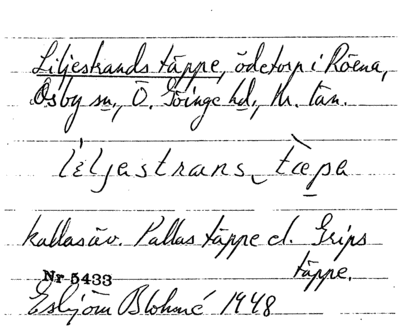 Liljestrands täppe, ödetorp i Röena,
Osby sn., Ö. Göinge hd., Kr. län.
liljastrans tæpa
kallas äv. Pallas täppe el. Grips
täppe.
Nr 5433
Esbjörn Blohmé 1948